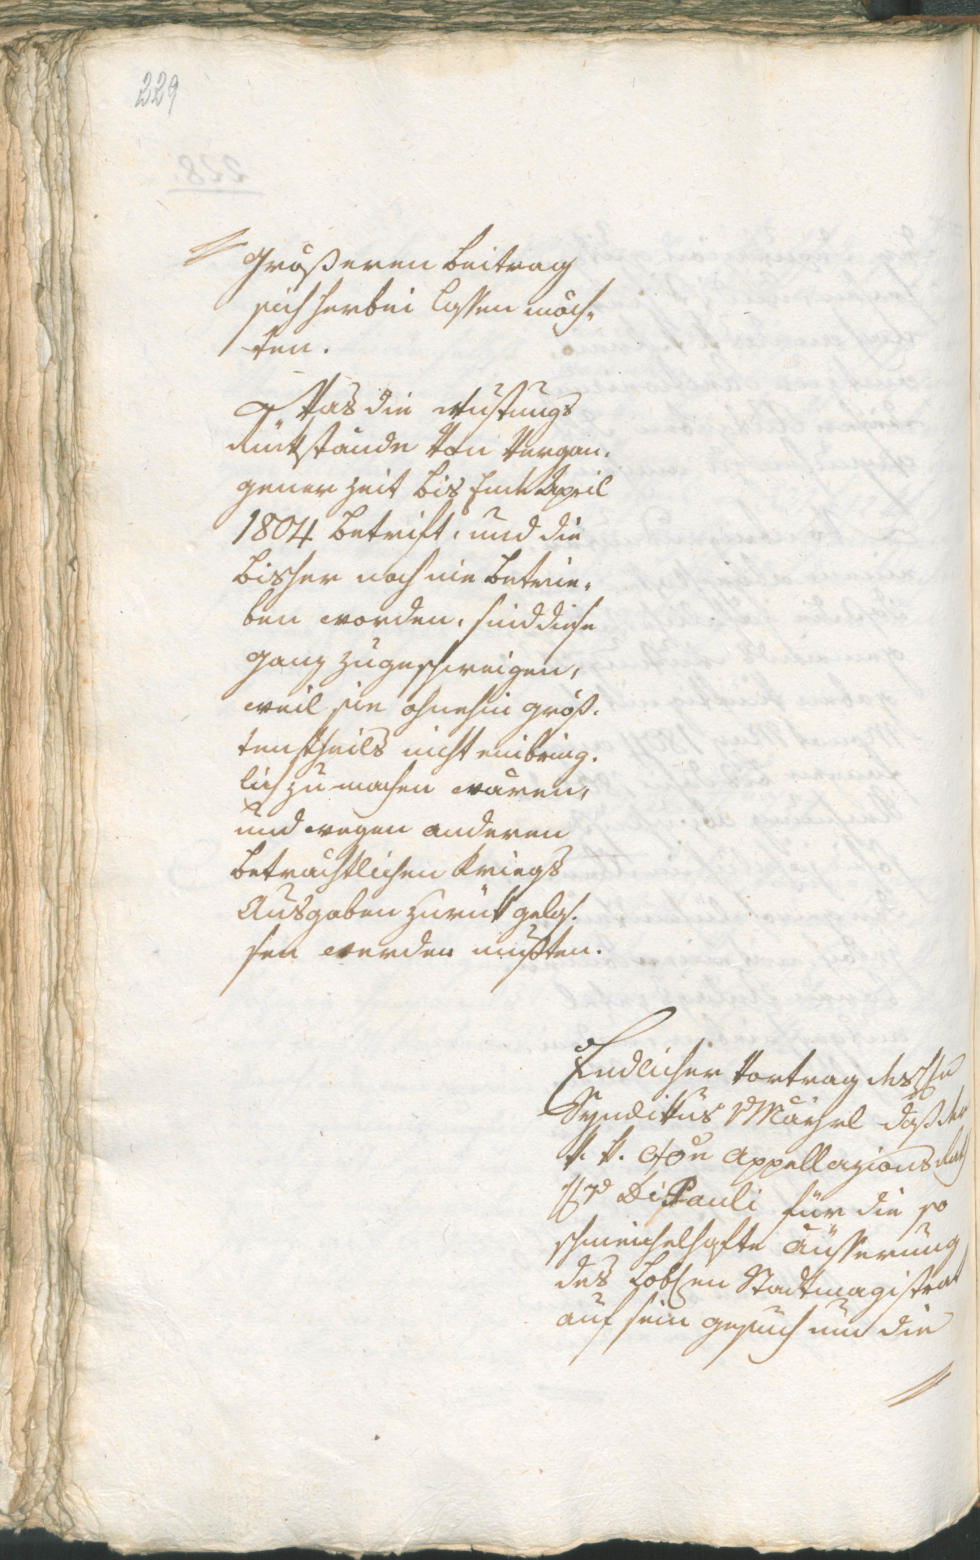 229
größeren Beitrag
sich herbei lassen möch-
ten.
Was die Wustungs
Rückstände von vergan-
gener Zeit bis Ende April
1804 betrift, und die
bisher noch nie betrie-
ben worden, sind diese
ganz zugeschweigen,
weil sie ohnehin größ-
tentheils nicht einbring-
lich zu machen wären,
und wegen anderen
beträchtlichen Kriegs
Ausgaben zurük gelas-
sen werden mußten.
Endlicher Vortrag des
Syndikus daß der
k. k. Appellazions Rath
Di Pauli für die so
schmeichelhafte Äusserung
des Stadtmagistrat
auf sein gesuch um die